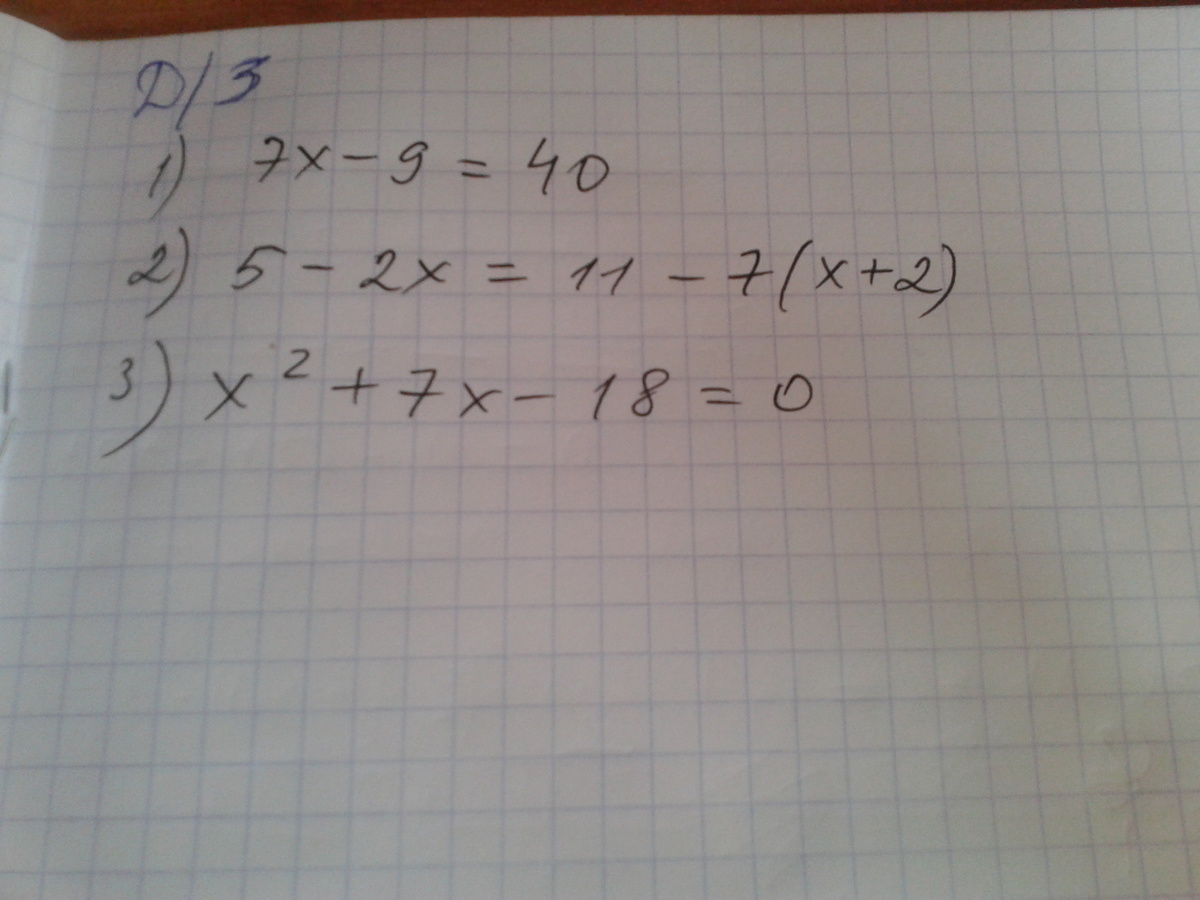 Д/З
1) 7x - 9 = 40
2) 5 - 2x = 11 - 7(x+2)
3) x² + 7x - 18 = 0